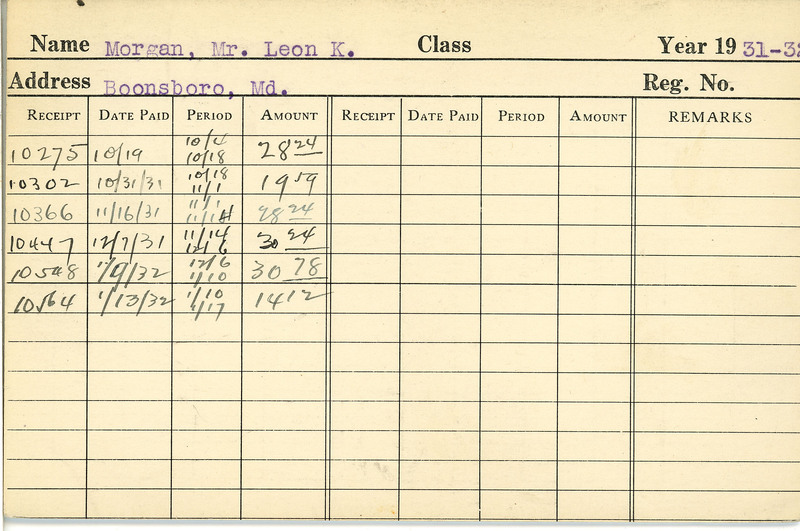 Name Morgan, Mr. Leon K. Class Year 19 31-32
Address Boonsboro, Md. Reg. No.
RECEIPT DATE PAID PERIOD AMOUNT RECEIPT DATE PAID PERIOD AMOUNT REMARKS
10275 10/19 10/4 10/18 28 24
10302 10/31/31 10/18 11/1 19 59
10366 11/16/31 11/1 11/14 28 24
10447 12/7/31 11/14 12/6 30 24
10548 1/9/32 12/6 1/10 30 78
10564 1/13/32 1/10 1/17 14 12